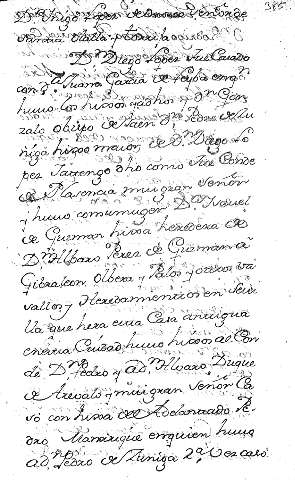 385
Dn Diego Lopez
Dn Diego Lopez fue Casado
con Da Juana Garcia de Leiba en qn
huuo los hixos a dho y Dn Gon
zalo obispo de Jaen Dn Pedro de Zu
ñiga hixo maior de Dn Diego Lo
pez como fue Conde
de Plasencia mui gran Señor
y huuo con su muger Da Ysauel
de Guzman hixa heredera de
Dn Albaro Perez de Guzman a
Gibraleon Olbera y otros va
sallos y Heredamientos en Seui
lla que hera una Casa antigua
en esta Ciudad, huuo hixos al Con
de Dn Pedro y a dn Alvaro Duque
de Areualo y mui gran Señor Ca
só con hixa del Adelantado Pe
dro Manrique en quien huuo
a dn Pedro de Zuniga 2a vez casó